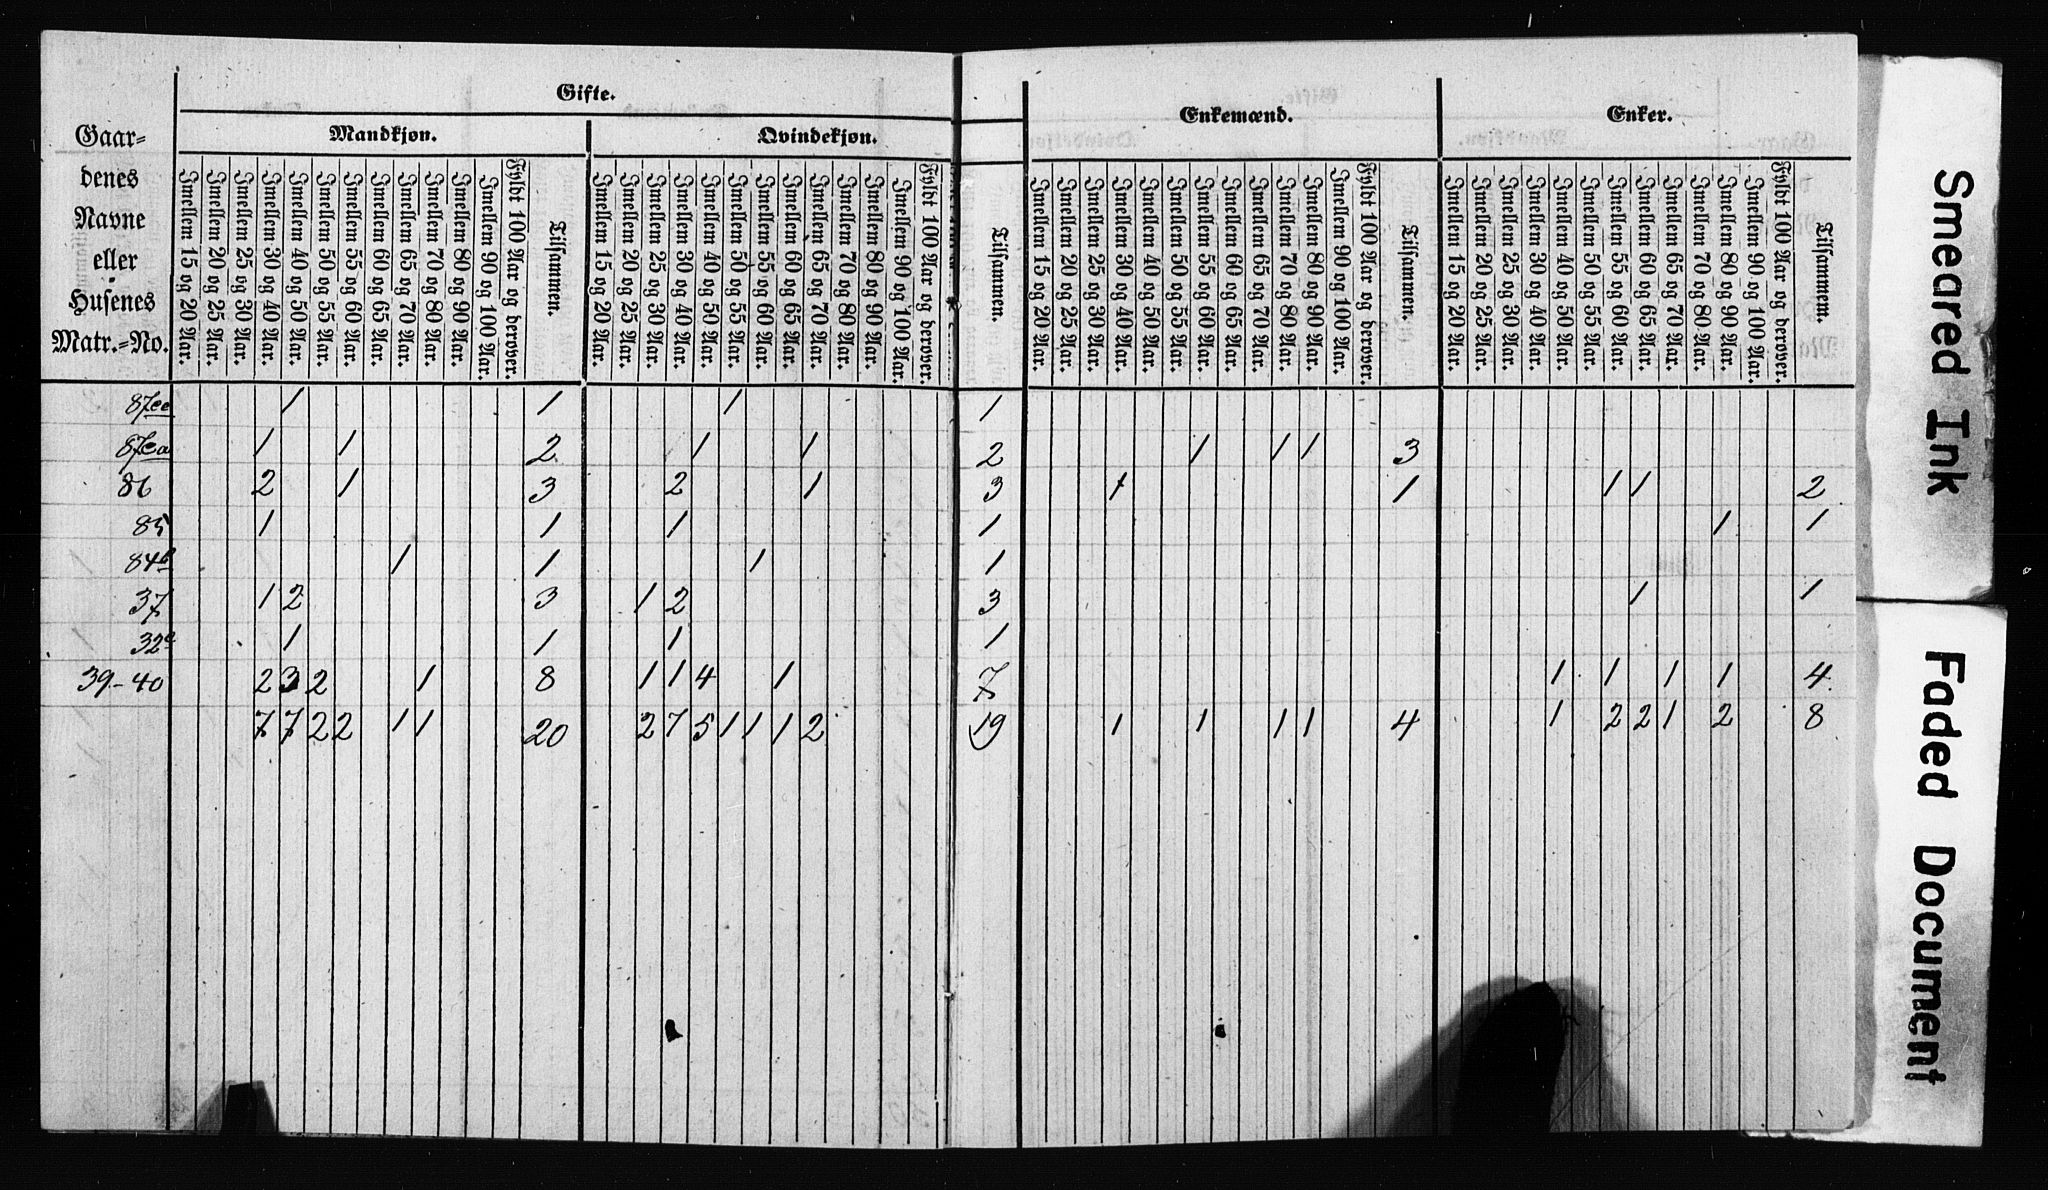 Gifte.
Mandkjøn. Qvindekjøn. Enkemænd. Enker.
Gaar-
denes
Navne
eller
Husenes
Matr.-No.
Imellem 15 og 20 Aar. Imellem 20 og 25 Aar. Imellem 25 og 30 Aar. Imellem 30 og 40 Aar. Imellem 40 og 50 Aar. Imellem 50 og 55 Aar. Imellem 55 og 60 Aar. Imellem 60 og 65 Aar. Imellem 65 og 70 Aar. Imellem 70 og 80 Aar. Imellem 80 og 90 Aar. Imellem 90 og 100 Aar. Fyldt 100 Aar og derover. Tilsammen.
Imellem 15 og 20 Aar. Imellem 20 og 25 Aar. Imellem 25 og 30 Aar. Imellem 30 og 40 Aar. Imellem 40 og 50 Aar. Imellem 50 og 55 Aar. Imellem 55 og 60 Aar. Imellem 60 og 65 Aar. Imellem 65 og 70 Aar. Imellem 70 og 80 Aar. Imellem 80 og 90 Aar. Imellem 90 og 100 Aar. Fyldt 100 Aar og derover. Tilsammen.
Imellem 15 og 20 Aar. Imellem 20 og 25 Aar. Imellem 25 og 30 Aar. Imellem 30 og 40 Aar. Imellem 40 og 50 Aar. Imellem 50 og 55 Aar. Imellem 55 og 60 Aar. Imellem 60 og 65 Aar. Imellem 65 og 70 Aar. Imellem 70 og 80 Aar. Imellem 80 og 90 Aar. Imellem 90 og 100 Aar. Fyldt 100 Aar og derover. Tilsammen.
Imellem 15 og 20 Aar. Imellem 20 og 25 Aar. Imellem 25 og 30 Aar. Imellem 30 og 40 Aar. Imellem 40 og 50 Aar. Imellem 50 og 55 Aar. Imellem 55 og 60 Aar. Imellem 60 og 65 Aar. Imellem 65 og 70 Aar. Imellem 70 og 80 Aar. Imellem 80 og 90 Aar. Imellem 90 og 100 Aar. Fyldt 100 Aar og derover. Tilsammen.
87ee 1 1 1 1
87ea 1 1 2 1 1 2 1 1 1 3
86 2 1 3 2 1 3 1 1 1 1 2
85 1 1 1 1 1 1
84b 1 1 1 1
37 1 2 3 1 2 3 1 1
32e 1 1 1 1
39-40 2 3 2 1 8 1 1 4 1 7 1 1 1 1 4
7 7 2 2 1 1 20 2 7 5 1 1 1 2 19 1 1 1 1 4 1 2 2 1 2 8
Smeared Ink
Faded Document